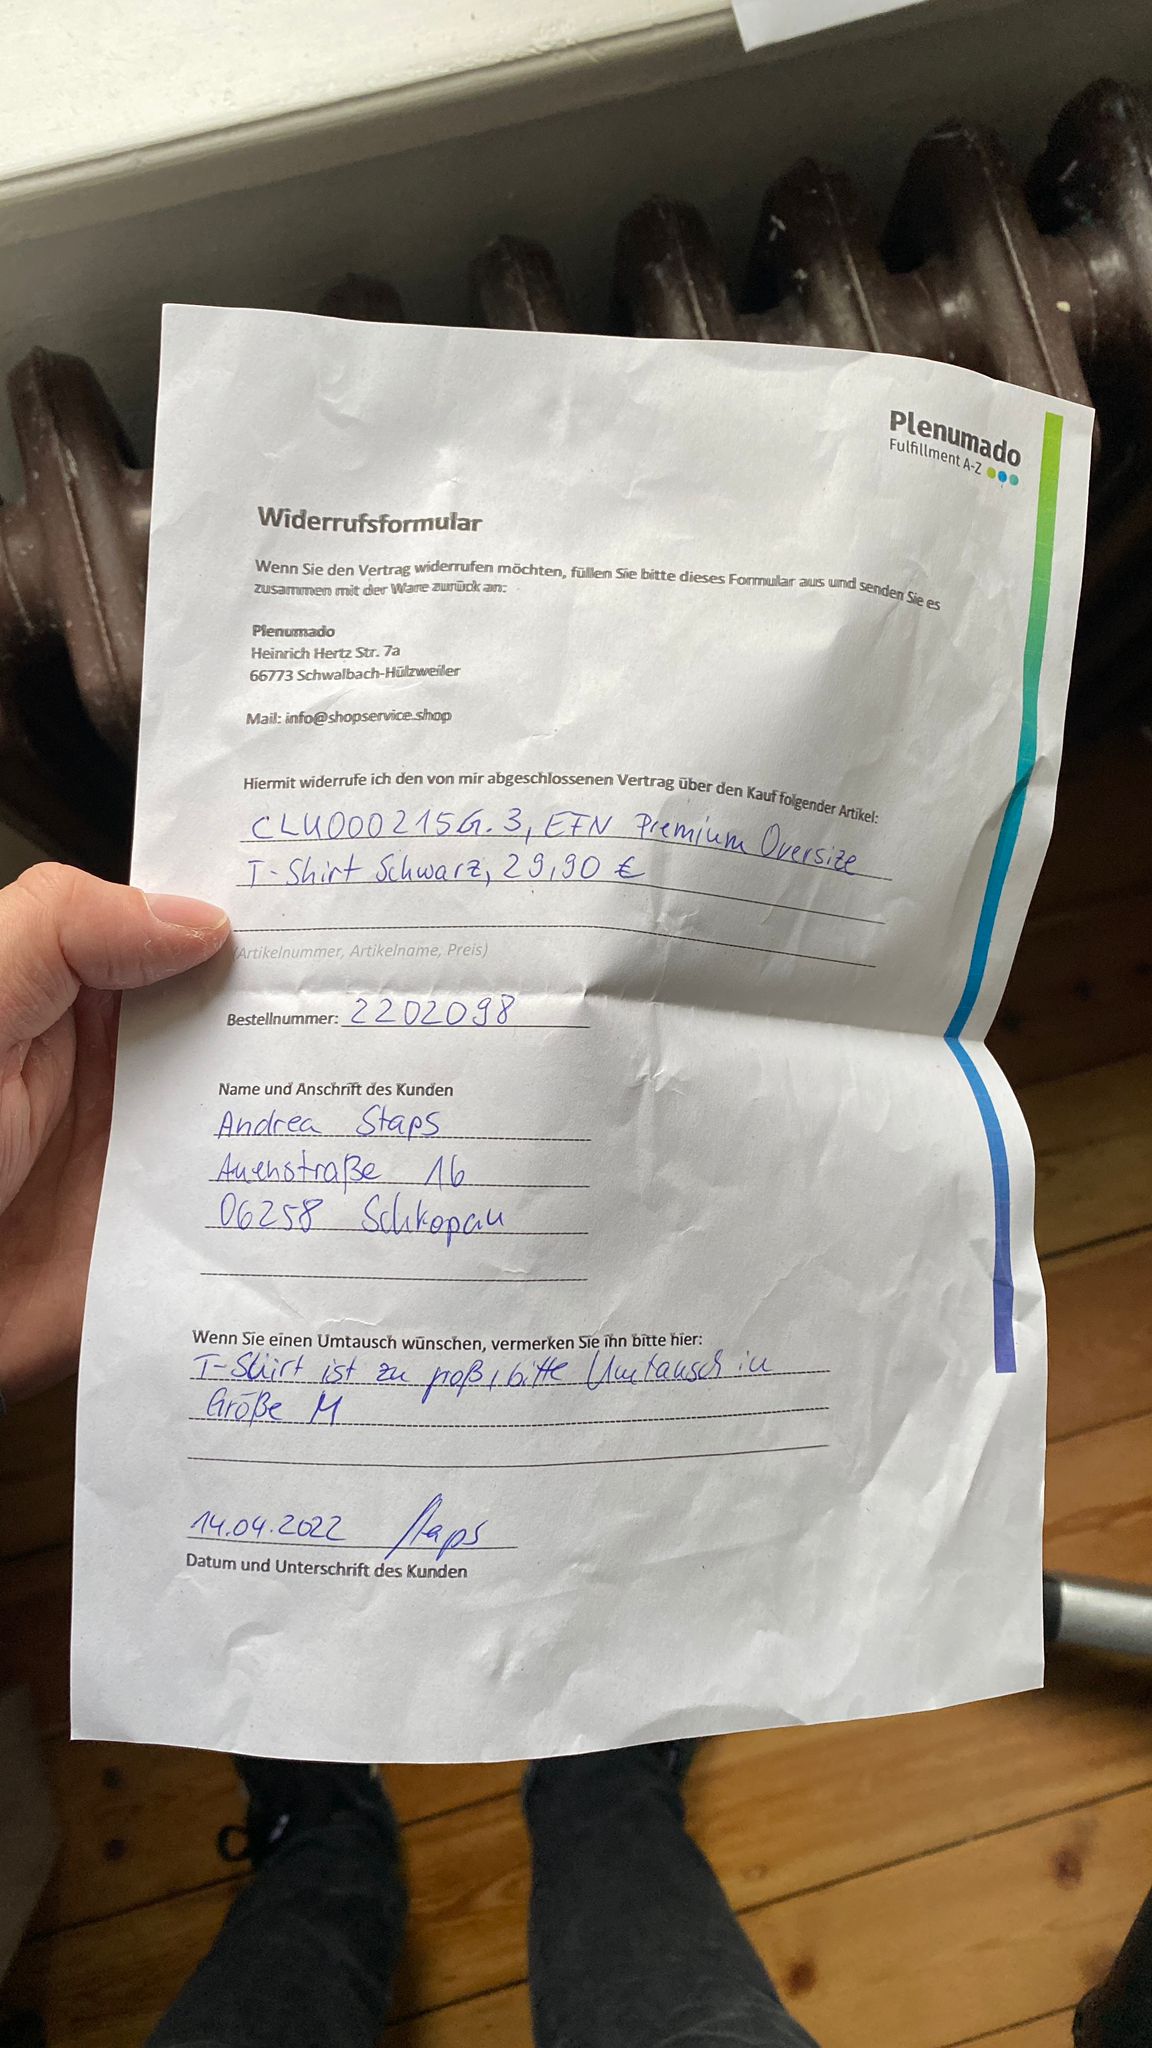 Plenumado
Fulfillment A-Z
Widerrufsformular
Wenn Sie den Vertrag widerrufen möchten, füllen Sie bitte dieses Formular aus und senden Sie es
zusammen mit der Ware zurück an:
Plenumado
Heinrich Hertz Str. 7a
66773 Schwalbach-Hülzweiler
Mail: info@shopservice.shop
Hiermit widerrufe ich den von mir abgeschlossenen Vertrag über den Kauf folgender Artikel:
CLU000215G.3, EFN Premium Oversize
T-Shirt Schwarz, 29,90 €
(Artikelnummer, Artikelname, Preis)
Bestellnummer: 2202098
Name und Anschrift des Kunden
Andrea Staps
Auenstraße 16
06258 Schkopau
Wenn Sie einen Umtausch wünschen, vermerken Sie ihn bitte hier:
T-Shirt ist zu groß, bitte Umtausch in
Größe M
14.04.2022 Staps
Datum und Unterschrift des Kunden